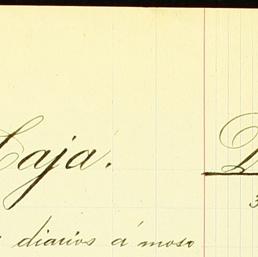 Caja.
diarios á moso
3